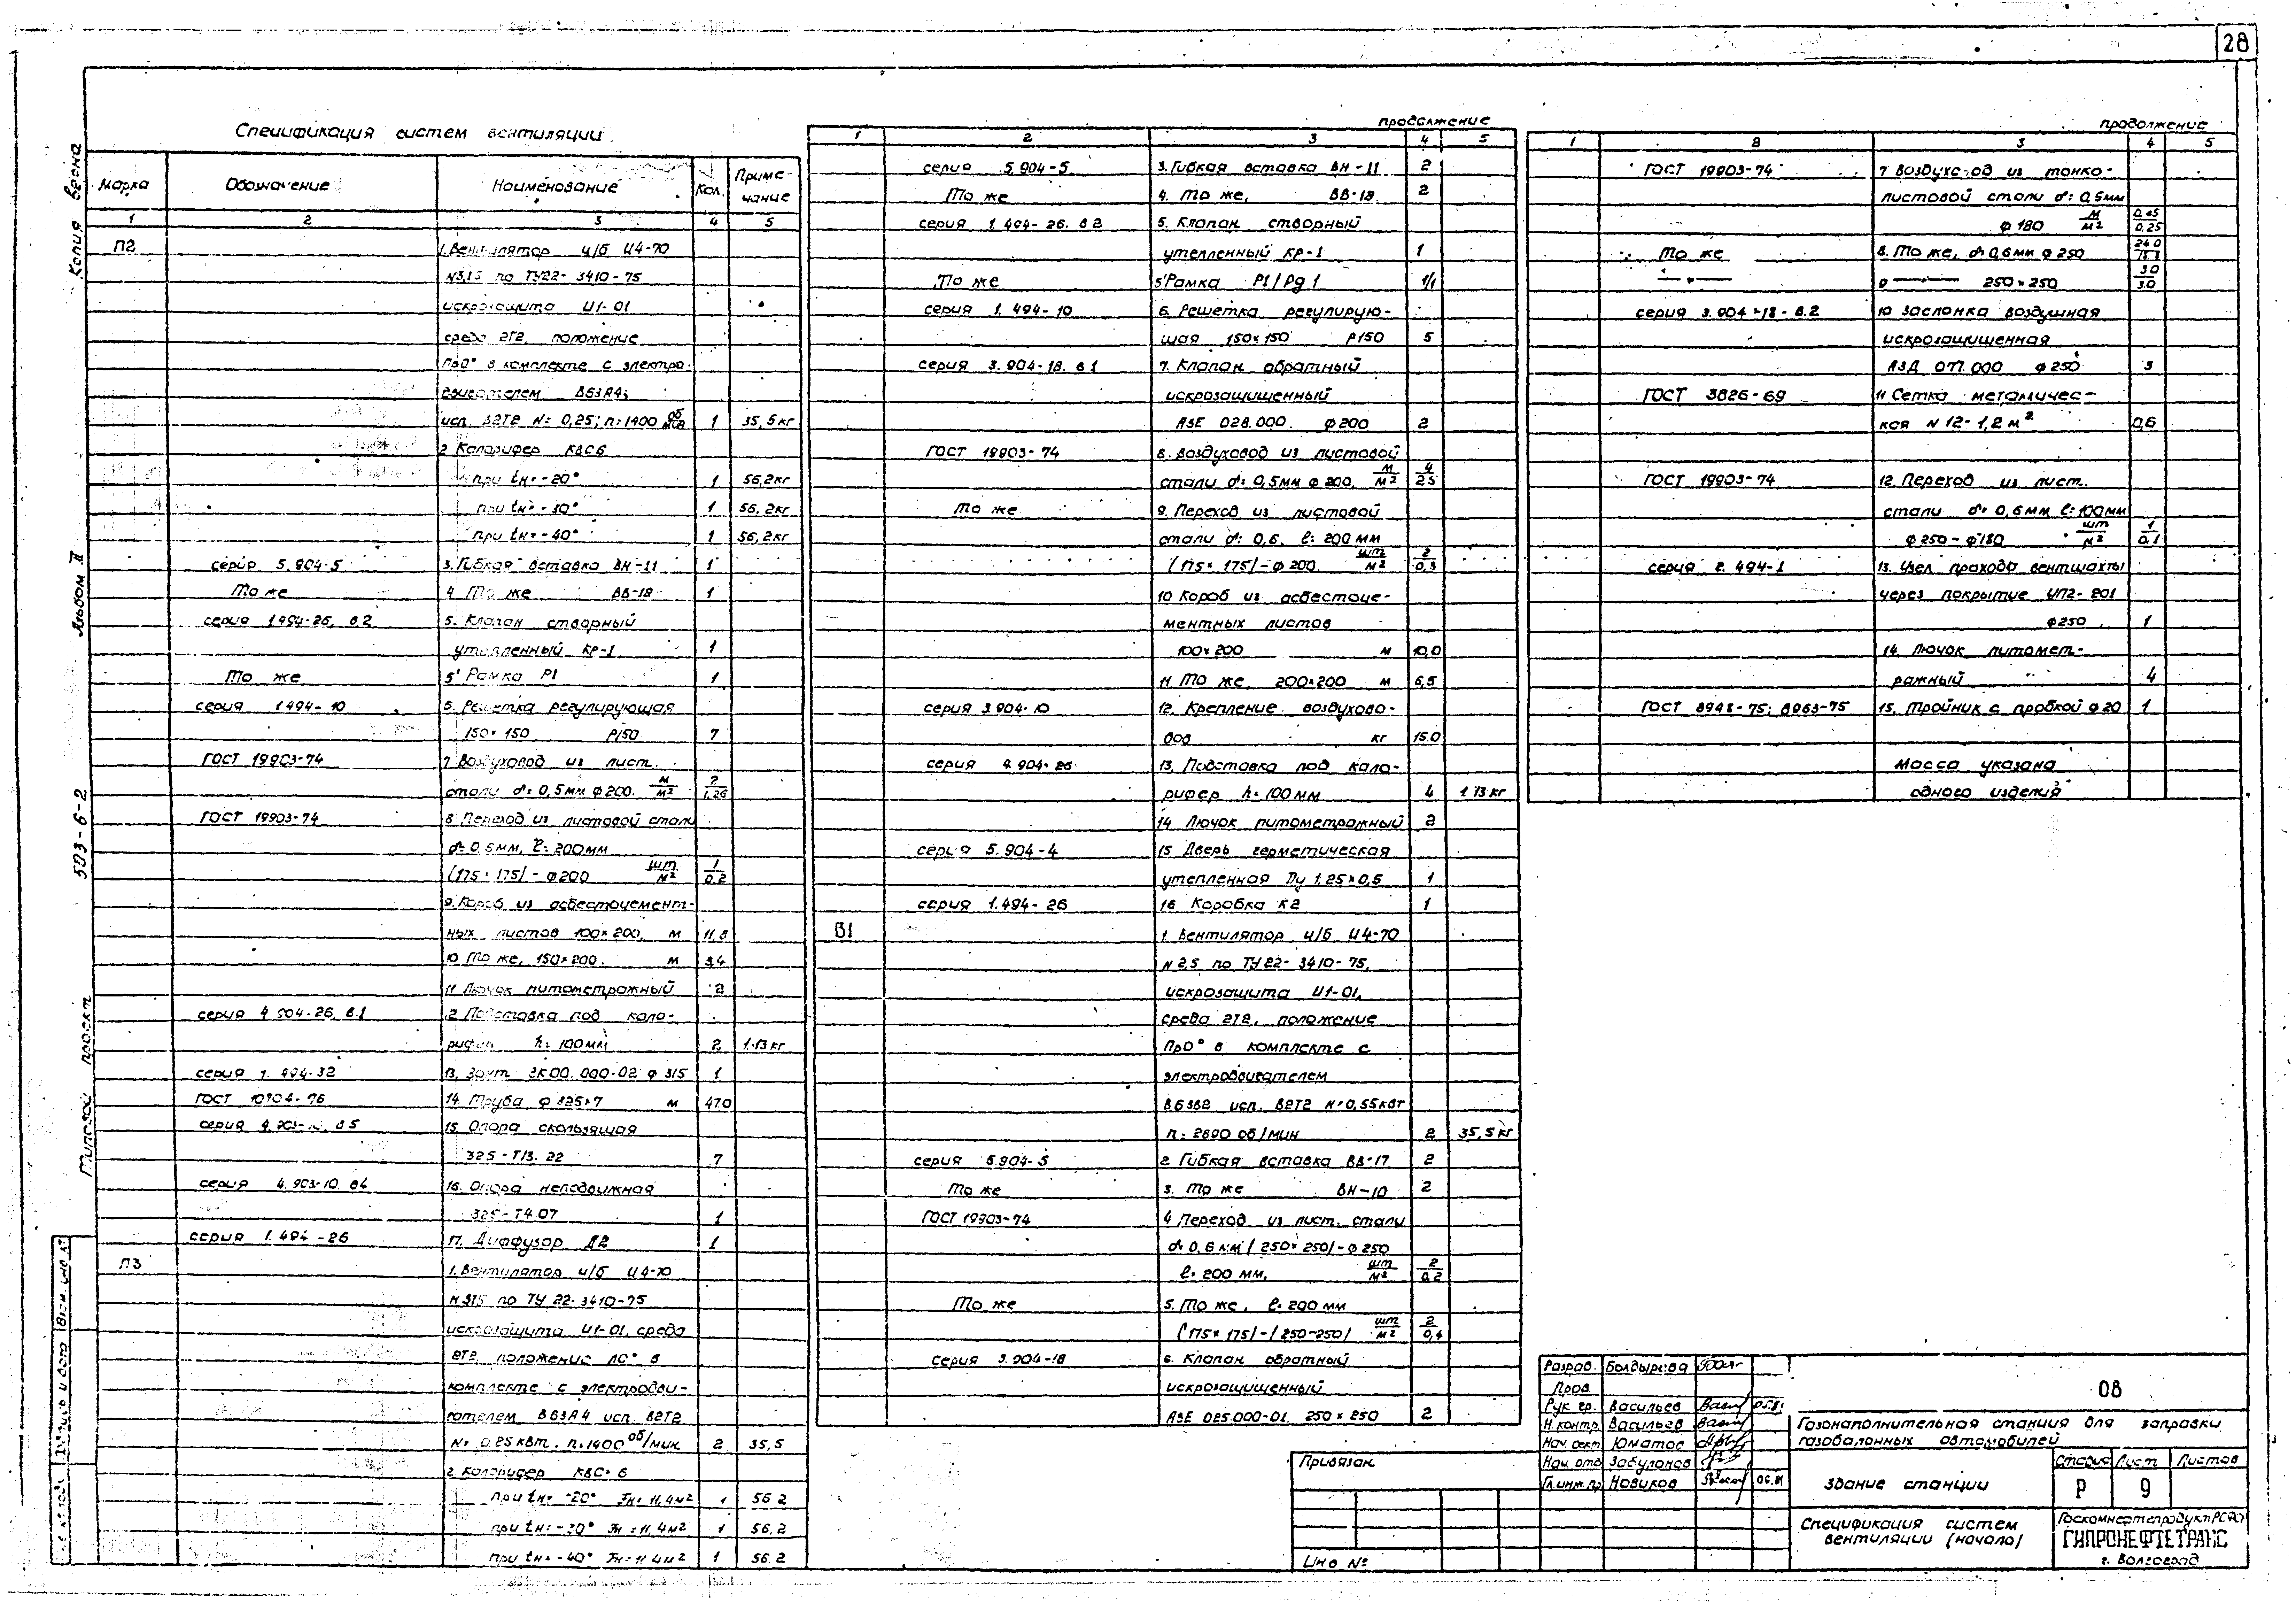 28
Копия верна
Альбом II
503-6-2
Типовой проект
Спецификация систем вентиляции
Марка Обозначение Наименование Кол. Примечание
1 2 3 4 5
П2 1. Вентилятор ц/б Ц4-70
N3,15 по ТУ22-3410-75
искрозащита И1-01
среда 2Т2, положение
Пр0° в комплекте с электро-
двигателем В63А4;
исп. В2Т2 N=0,25; n=1400 об/мин 1 35,5 кг
2 Калорифер КВС6
при tн=-20° 1 56,2кг
при tн=-30° 1 56,2кг
при tн=-40° 1 56,2кг
серия 5.904-5 3. Гибкая вставка ВН-11 1
То же 4 То же ВВ-18 1
серия 1.494-26, в.2 5. Клапан створный
утепленный КР-1 1
То же 5' Рамка Р1 1
серия 1.494-10 6. Решетка регулирующая
150×150 Р150 7
ГОСТ 19903-74 7 Воздуховод из лист.
стали d=0,5мм φ200. м/м² 2/1,26
ГОСТ 19903-74 8 Переход из листовой стали
d=0,5мм, ℓ=200мм
(175×175)-φ200 шт/м² 1/0,2
9. Короб из асбестоцемент-
ных листов 100×200, м 11,8
10 То же, 150×200. м 3,4
11 Лючок питометражный 2
серия 4.904-26, в.1 12 Подставка под кало-
рифер h=100мм 2 1.13 кг
серия 1.494-32 13. Зонт ЗК00.000-02 φ315 1
ГОСТ 10704-76 14. Труба φ325×7 м 47,0
серия 4.903-10, в5 15. Опора скользящая
325-Т13.22 7
серия 4.903-10, в4 16. Опора неподвижная
325-Т4.07 1
серия 1.494-26 17. Диффузор Д2 1
П3 1. Вентилятор ц/б Ц4-70
N3,15 по ТУ 22-3410-75
искрозащита И1-01, среда
2Т2, положение Л0° в
комплекте с электродви-
гателем В63А4 исп. В2Т2
N=0,25 кВт. n=1400 об/мин 2 35,5
2 Калорифер КВС-6
при tн=-20° Fн=11,4м2 1 56.2
при tн=-30° Fн=11,4м2 1 56.2
при tн=-40° Fн=11,4м2 1 56.2
продолжение
1 2 3 4 5
серия 5.904-5 3. Гибкая вставка ВН-11 2
То же 4. То же, ВВ-18 2
серия 1.494-26. в2 5. Клапан створный
утепленный КР-1 1
То же 5'Рамка Р1/Рд1 1/1
серия 1.494-10 6. Решетка регулирую-
щая 150×150 Р150 5
серия 3.904-18. в1 7. Клапан обратный
искрозащищенный
АЗЕ 028.000. φ200 2
ГОСТ 19903-74 8. Воздуховод из листовой
стали d=0,5мм φ200, м/м² 4/2,5
То же 9. Переход из листовой
стали d=0,6, ℓ=200 мм
(175×175)-φ200. шт/м² 2/0,3
10 Короб из асбестоце-
ментных листов
100×200 м 10,0
11. То же, 200×200 м 6,5
серия 3.904-10 12. Крепление воздухово-
дов кг 15.0
серия 4.904-26 13. Подставка под кало-
рифер h=100мм 4 1.13 кг
14 Лючок питометражный 2
серия 5.904-4 15 Дверь герметическая
утепленная Ду 1.25×0,5 1
серия 1.494-26 16 Коробка К2 1
В1 1 Вентилятор ц/б Ц4-70
N2,5 по ТУ22-3410-75,
искрозащита И1-01,
среда 2Т2, положение
Пр0° в комплекте с
электродвигателем
В63В2 исп. В2Т2 N=0,55кВт
n=2890 об/мин 2 35,5 кг
серия 5.904-5 2 Гибкая вставка ВВ-17 2
То же 3. То же ВН-10 2
ГОСТ 19903-74 4 Переход из лист. стали
d=0,6 мм (250×250)-φ250
ℓ=200 мм, шт/м² 2/0,2
То же 5. То же, ℓ=200 мм
(175×175)-(250-250) шт/м² 2/0,4
серия 3.904-18 6. Клапан обратный
искрозащищенный
АЗЕ 025.000-01. 250×250 2
продолжение
1 2 3 4 5
ГОСТ 19903-74 7 Воздуховод из тонко-
листовой стали d=0,5мм
φ180 м/м² 0,45/0,25
То же 8. То же, d=0,6мм φ250
9 250×250 3.0/3.0
серия 3.904-18-в.2 10 Заслонка воздушная
искрозащищенная
АЗД 077.000 φ250 3
ГОСТ 3826-69 11 Сетка металичес-
кая N12-1,2 м² 0,6
ГОСТ 19903-74 12. Переход из лист.
стали d=0,6 мм ℓ=100мм
φ250-φ180 шт/м² 1/0.1
серия 2.494-1 13. Узел прохода вентшахты
через покрытие УП2-201
φ250 1
14. Лючок питомет-
ражный 4
ГОСТ 8948-75; 8963-75 15. Тройник с пробкой φ20 1
Масса указана
одного изделия
Разраб. Болдырева
Пров.
Рук гр. Васильев
Н.контр. Васильев
Нач. сект Юматов
Нач. отд Забулонов
Гл.инж.пр Новиков 06.81
ОВ
Газонаполнительная станция для заправки
газобалонных автомобилей
Здание станции
Стадия Лист Листов
Р 9
Спецификация систем
вентиляции (начало)
Госкомнефтепродукт РСФСР
ГИПРОНЕФТЕТРАНС
г. Волгоград
Привязан
Инв №
Подпись и дата
Взам. инв. №